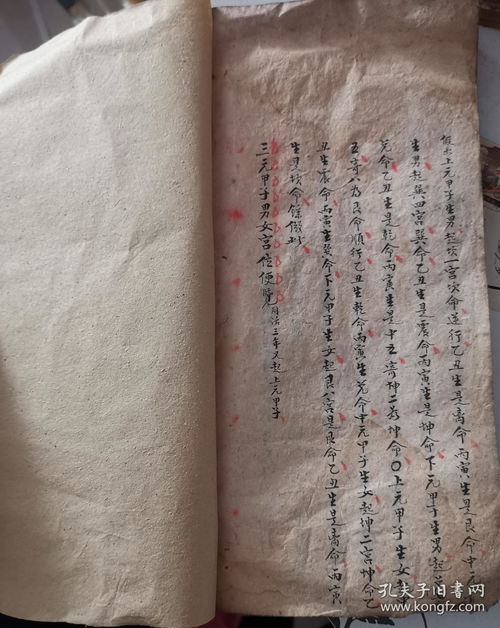 假如上元甲子生男起坎一宮坎命逆行乙丑生是离命丙寅生是艮命中元
生男起巽四宮巽命乙丑生是震命丙寅生是坤命下元甲子生男起
兑命乙丑生是乾命丙寅生是中五寄坤二為坤命〇上元甲子生女起
五寄八為艮命順行乙丑生乾命丙寅生兑命中元甲子生女起坤二宮坤命乙
丑生震命丙寅生巽命下元甲子生女起艮八宮是艮命乙丑生是离命丙寅
生是坎命餘倣此
三元甲子男女宮位便覽 同治三年又起上元甲子
孔夫子旧书网
www.kongfz.com